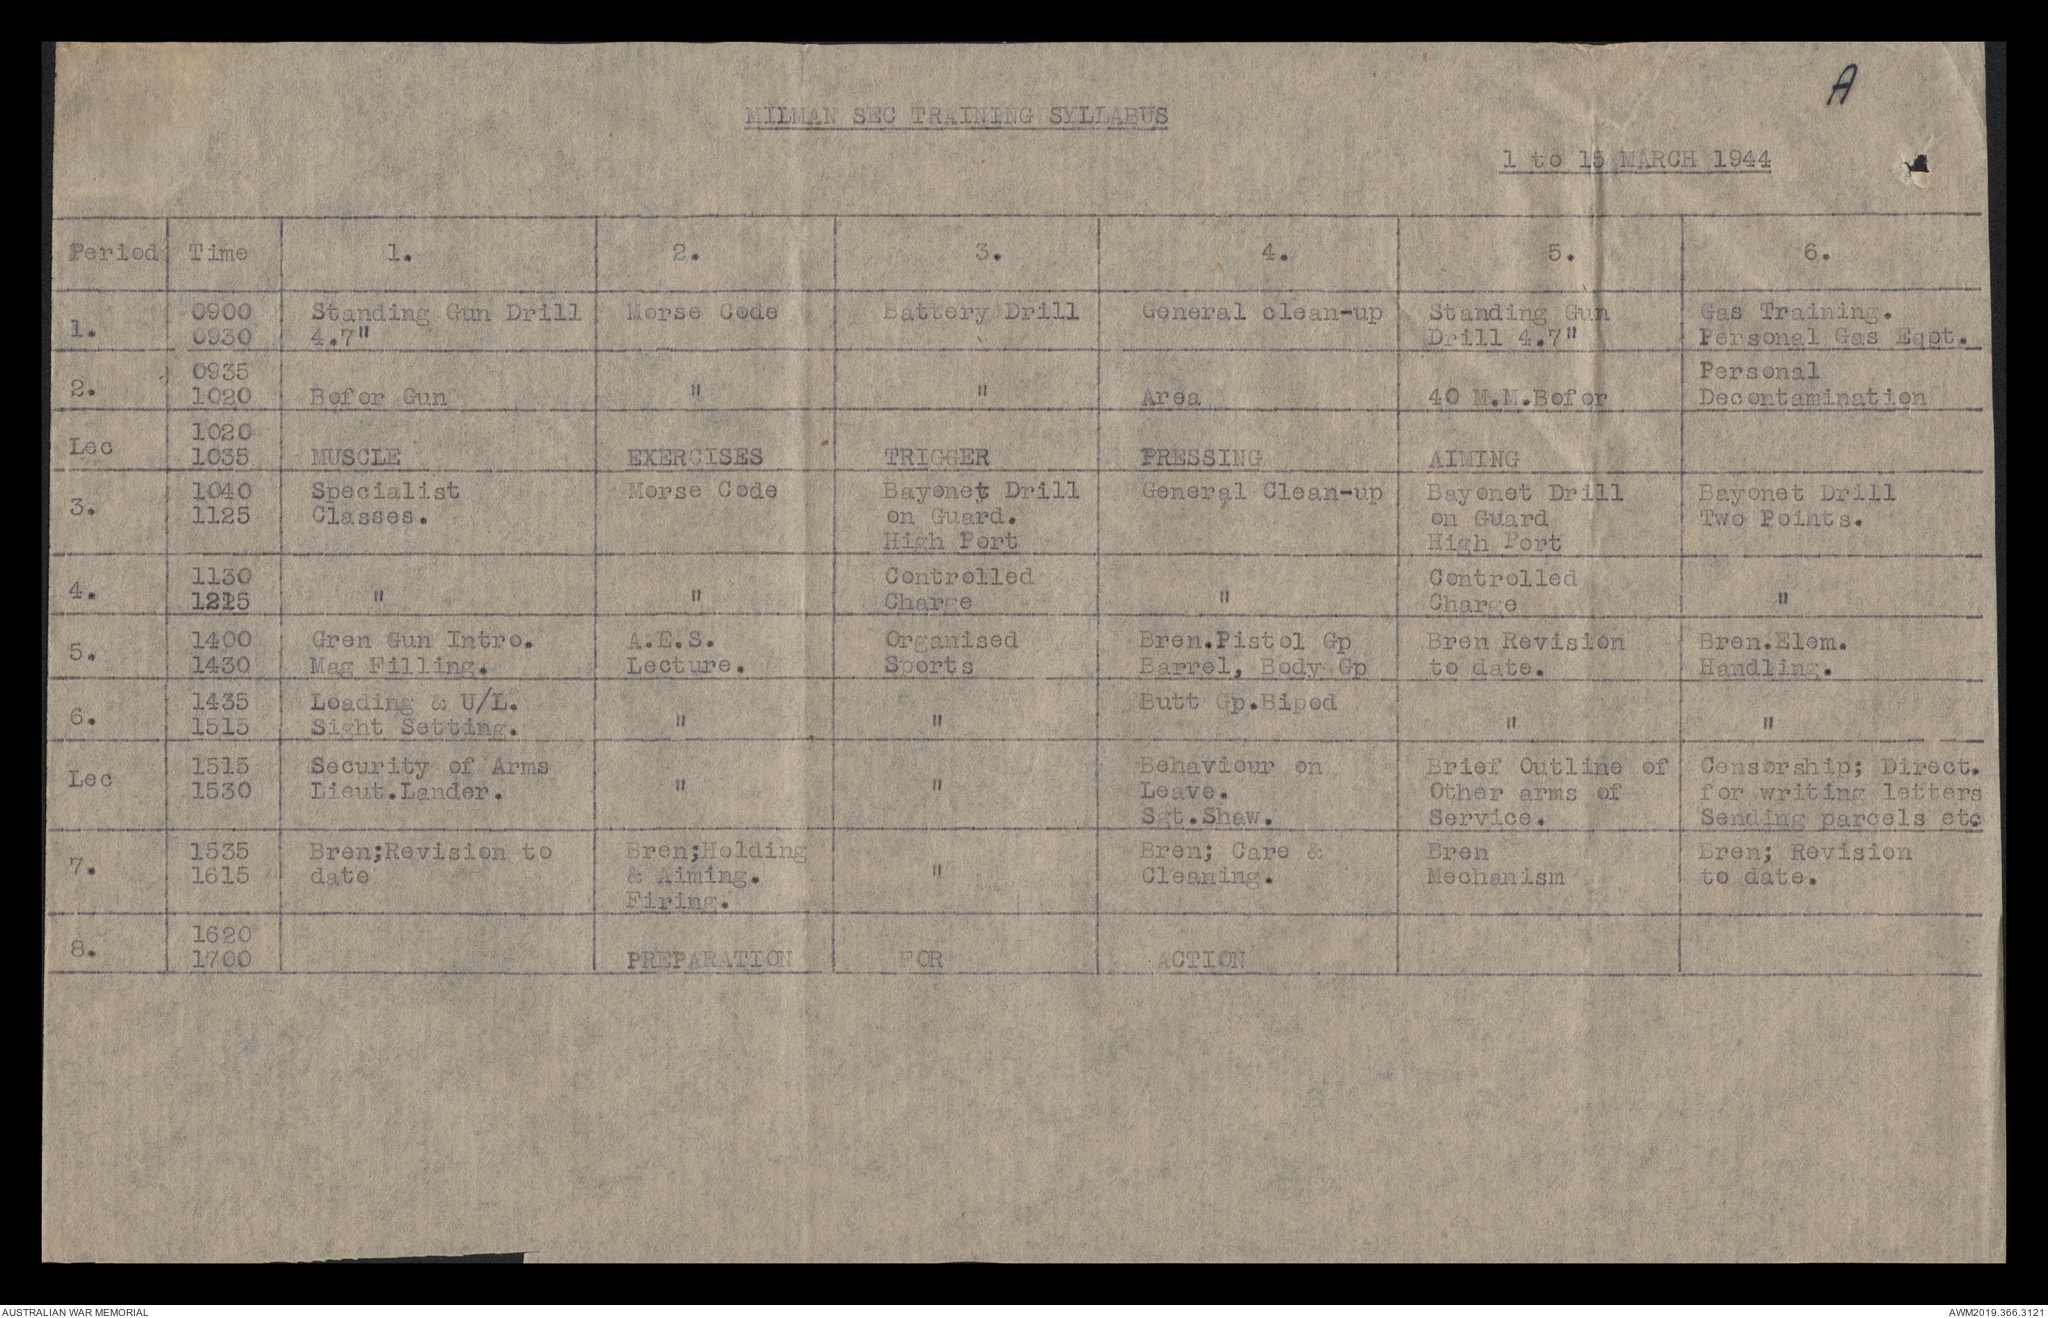 A
MILMAN SEC TRAINING SYLLABUS
1 to 15 MARCH 1944
Period Time 1. 2. 3. 4. 5. 6.
1. 0900 Standing Gun Drill Morse Code Battery Drill General clean-up Standing Gun Gas Training.
0930 4.7" Drill 4.7" Personal Gas Eqpt.
2. 0935 Personal
1020 Bofor Gun " " Area 40 M.M.Bofor Decontamination
Lec 1020
1035 MUSCLE EXERCISES TRIGGER PRESSING AIMING
3. 1040 Specialist Morse Code Bayonet Drill General Clean-up Bayonet Drill Bayonet Drill
1125 Classes. on Guard. on Guard Two Points.
High Port High Port
4. 1130 Controlled Controlled
1215 " " Charge " Charge "
5. 1400 Gren Gun Intro. A.E.S. Organised Bren.Pistol Gp Bren Revision Bren.Elem.
1430 Mag Filling. Lecture. Sports Barrel, Body Gp to date. Handling.
6. 1435 Loading & U/L. Butt Gp.Bipod
1515 Sight Setting. " " " "
Lec 1515 Security of Arms Behaviour on Brief Outline of Censorship; Direct.
1530 Lieut.Lander. " " Leave. Other arms of for writing letters
Sgt.Shaw. Service. Sending parcels etc
7. 1535 Bren;Revision to Bren;Holding Bren; Care & Bren Bren; Revision
1615 date & Aiming. " Cleaning. Mechanism to date.
Firing.
8. 1620
1700 PREPARATION FOR ACTION
AUSTRALIAN WAR MEMORIAL AWM2019.366.3121